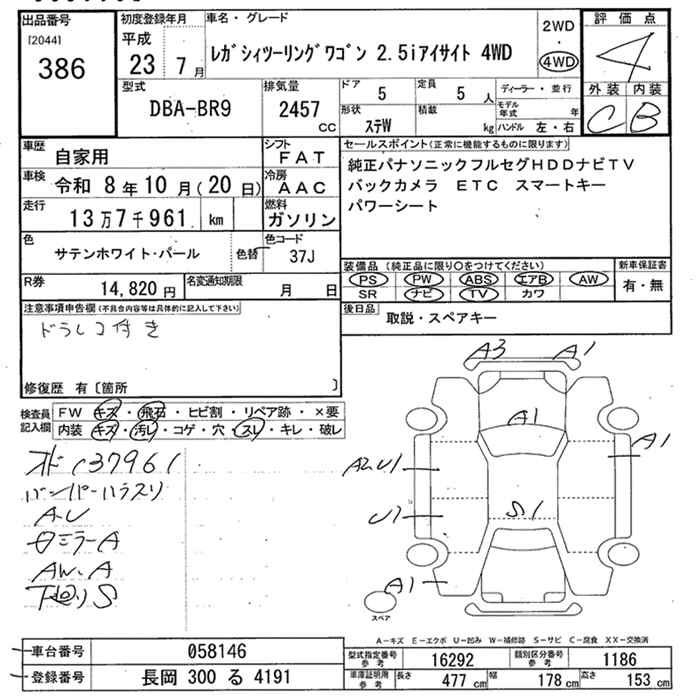 出品番号
[2044]
386
初度登録年月
平成
23年7月
車名・グレード
レガシィツーリングワゴン 2.5iアイサイト 4WD
2WD
4WD
評価点
4
外装 内装
C B
型式
DBA-BR9
排気量
2457
CC
ドア 5
定員 5人
形状 ステW
積載 kg
ディーラー・並行
モデル年式 年
ハンドル 左・右
車歴 自家用
シフト FAT
車検 令和 8年10月(20日)
冷房 AAC
走行 13万7千961 km
燃料 ガソリン
色 サテンホワイト・パール
色替
色コード 37J
R券 14,820円
名変通知期限 月 日
セールスポイント(正常に機能するものに限ります)
純正パナソニックフルセグHDDナビTV
バックカメラ ETC スマートキー
パワーシート
装備品(純正品に限り○をつけてください)
PS PW ABS エアB AW
SR ナビ TV カワ
新車保証書
有・無
後日品 取説・スペアキー
注意事項申告欄(不具合内容等は具体的に記入して下さい)
ドラレコ付き
修復歴 有〔箇所 〕
検査員記入欄
FW キズ・飛石・ヒビ割・リペア跡・×要
内装 キズ・汚レ・コゲ・穴・スレ・キレ・破レ
オド 137961
バンパーハラスリ
A.U
ミラーA
AW.A
下廻りS
A3 A1
A1
A1
A2U1
U1
S1
A1
スペア
A-キズ E-エクボ U-凹み W-補修跡 S-サビ C-腐食 XX-交換済
車台番号 058146
登録番号 長岡 300 る 4191
型式指定番号 参考 16292
類別区分番号 参考 1186
車庫証明用 参考 長さ 477cm 幅 178cm 高さ 153cm